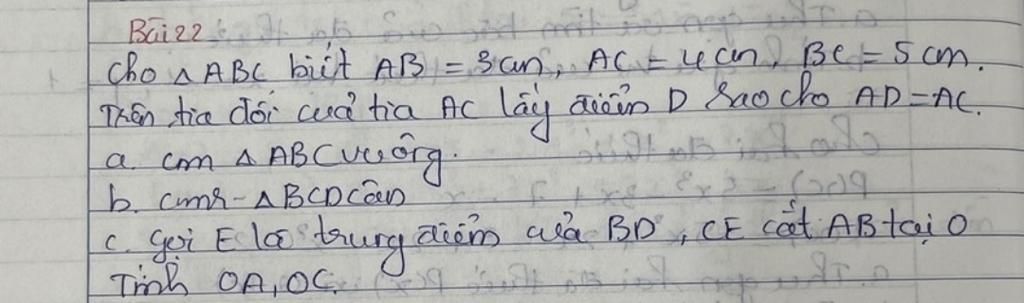 Bài 22
Cho △ABC biết AB = 3cm, AC = 4cm, BC = 5cm.
Trên tia đối của tia AC lấy điểm D sao cho AD=AC.
a. cm △ABC vuông.
b. cmr △BCD cân
c. gọi E là trung điểm của BD, CE cắt AB tại O
Tính OA, OC.